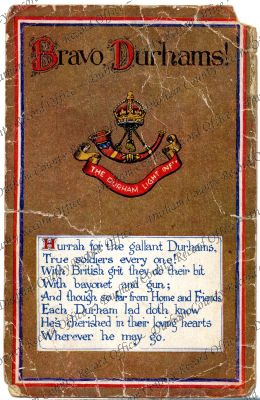 Bravo, Durhams!
THE DURHAM LIGHT INFY
Hurrah for the gallant Durhams,
True soldiers every one!
With British grit they do their bit
With bayonet and gun;
And though so far from Home and Friends
Each Durham lad doth know
He's cherished in their loving hearts
Wherever he may go.